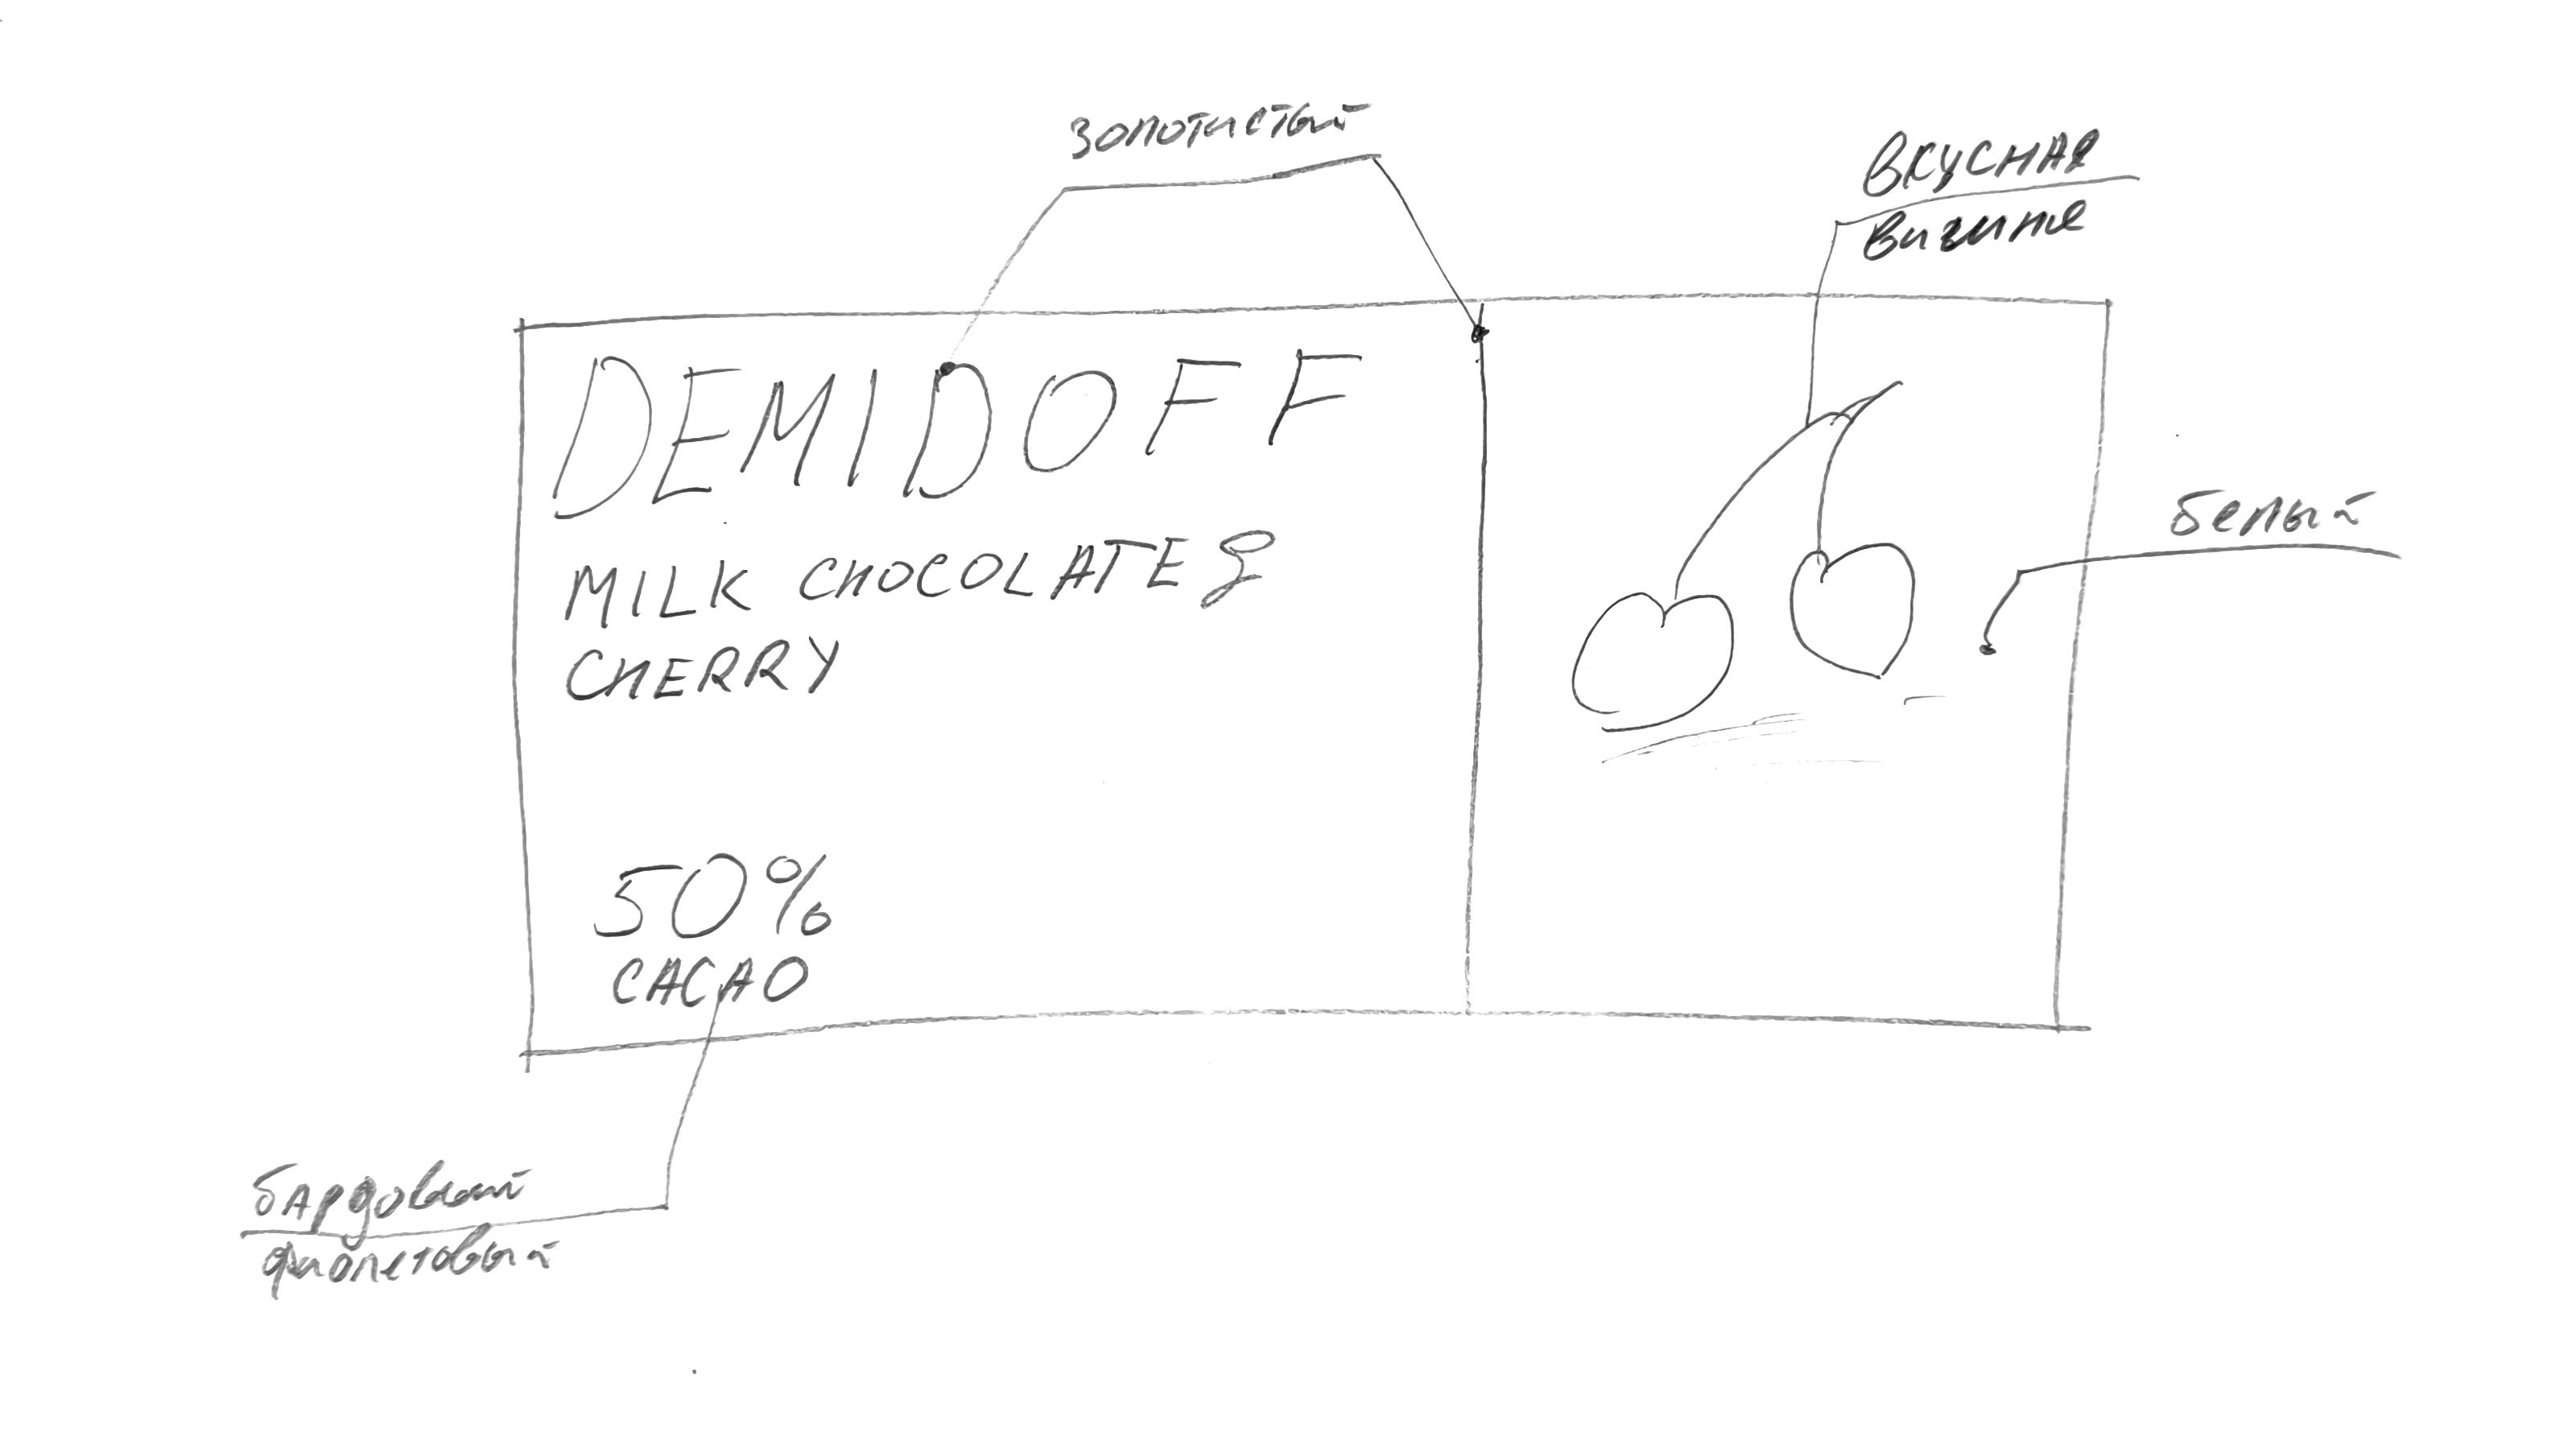 золотистый
вкусная
вишня
DEMIDOFF
белый
MILK CHOCOLATE &
CHERRY
50%
CACAO
бардовый
фиолетовый